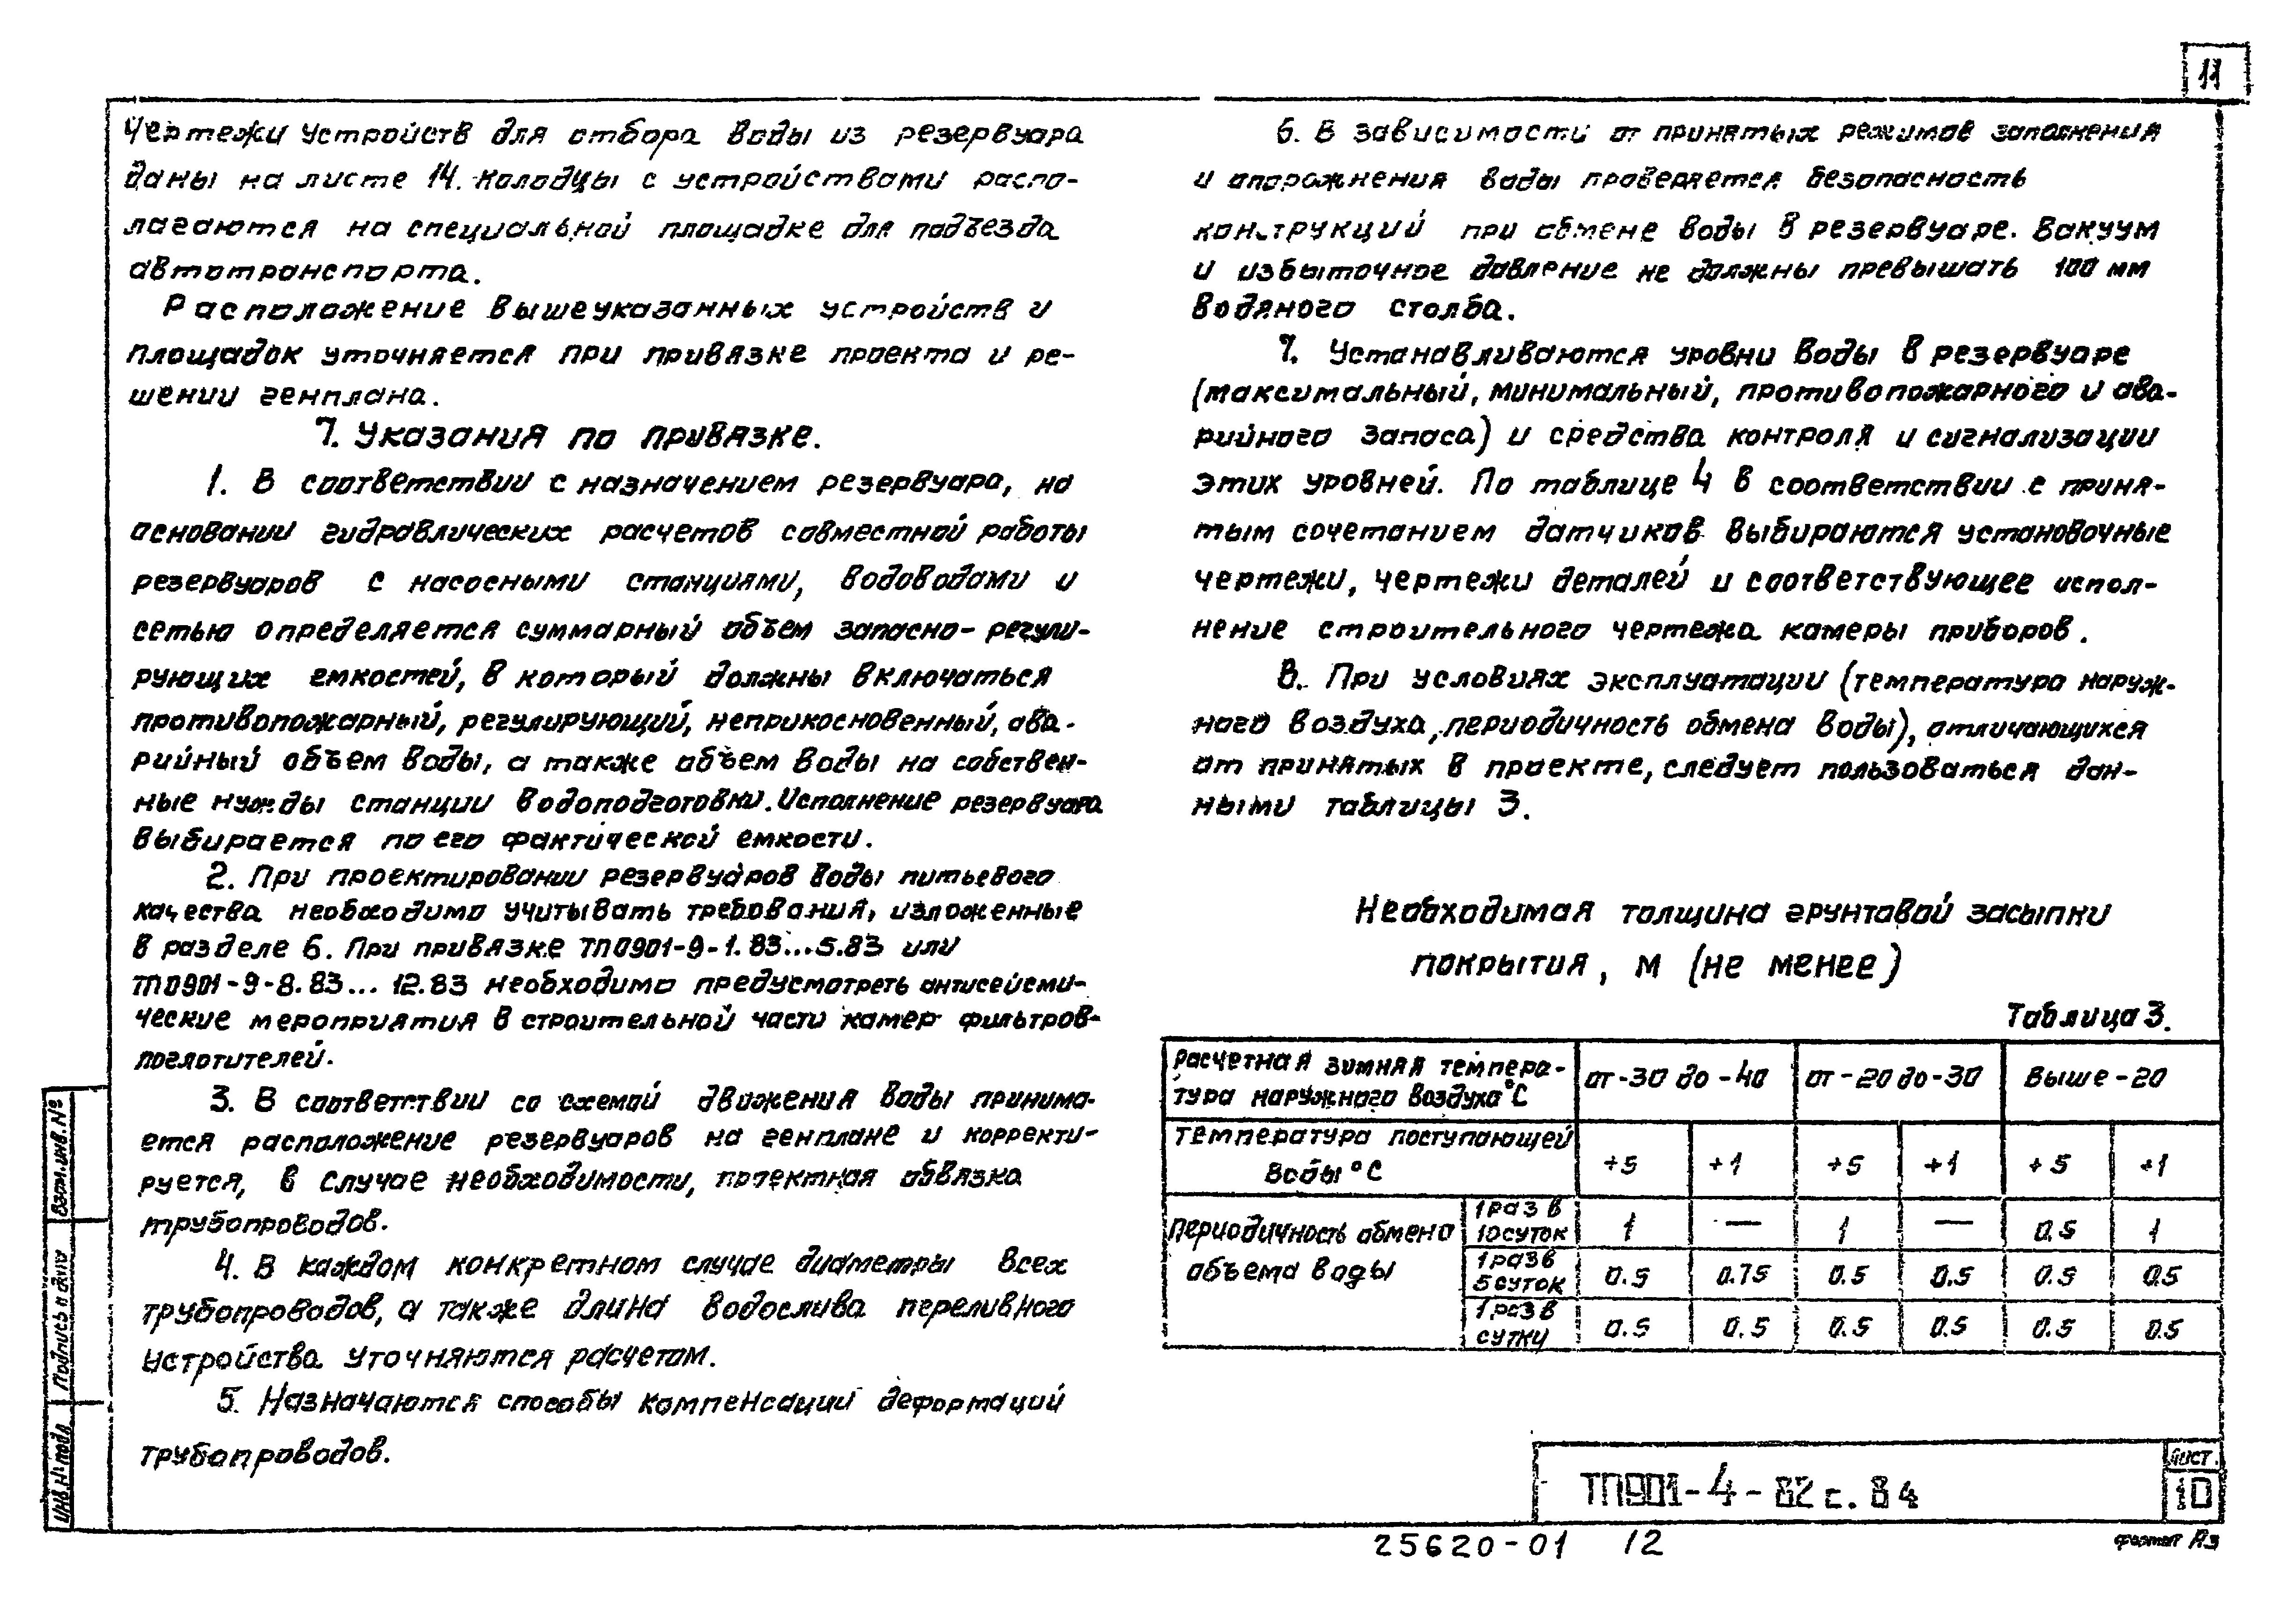 11
Чертежи устройств для отбора воды из резервуара
даны на листе 14. Колодцы с устройствами распо-
лагаются на специальной площадке для подъезда
автотранспорта.
Расположение вышеуказанных устройств и
площадок уточняется при привязке проекта и ре-
шении генплана.
7. Указания по привязке.
1. В соответствии с назначением резервуара, на
основании гидравлических расчетов совместной работы
резервуаров с насосными станциями, водоводами и
сетью определяется суммарный объем запасно-регули-
рующих емкостей, в который должны включаться
противопожарный, регулирующий, неприкосновенный, ава-
рийный объем воды, а также объем воды на собствен-
ные нужды станции водоподготовки. Исполнение резервуара
выбирается по его фактической емкости.
2. При проектировании резервуаров воды питьевого
качества необходимо учитывать требования, изложенные
в разделе 6. При привязке ТП0901-9-1.83...5.83 или
ТП0901-9-8.83... 12.83 необходимо предусмотреть антисейсми-
ческие мероприятия в строительной части камер фильтров-
поглотителей.
3. В соответствии со схемой движения воды принима-
ется расположение резервуаров на генплане и корректи-
руется, в случае необходимости, проектная обвязка
трубопроводов.
4. В каждом конкретном случае диаметры всех
трубопроводов, а также длина водослива переливного
устройства уточняются расчетом.
5. Назначаются способы компенсации деформаций
трубопроводов.
6. В зависимости от принятых режимов заполнения
и опорожнения воды проверяется безопасность
конструкций при обмене воды в резервуаре. Вакуум
и избыточное давление не должны превышать 100 мм
водяного столба.
7. Устанавливаются уровни воды в резервуаре
(максимальный, минимальный, противопожарного и ава-
рийного запаса) и средства контроля и сигнализации
этих уровней. По таблице 4 в соответствии с приня-
тым сочетанием датчиков выбираются установочные
чертежи, чертежи деталей и соответствующее испол-
нение строительного чертежа камеры приборов.
8. При условиях эксплуатации (температура наруж-
ного воздуха, периодичность обмена воды), отличающихся
от принятых в проекте, следует пользоваться дан-
ными таблицы 3.
Необходимая толщина грунтовой засыпки
покрытия, м (не менее)
Таблица 3.
Расчетная зимняя темпера-
тура наружного воздуха °С
от -30 до -40 от -20 до -30 выше -20
Температура поступающей
воды °С
+5 +1 +5 +1 +5 +1
Периодичность обмена
объема воды
1 раз в
10 суток
1 — 1 — 0.5 1
1 раз в
5 суток
0.5 0.75 0.5 0.5 0.5 0.5
1 раз в
сутки
0.5 0.5 0.5 0.5 0.5 0.5
Взам.инв.№
Подпись и дата
Инв.№ подл
ТП901-4-82 с. 84
Лист.
10
25620-01 12
формат А3